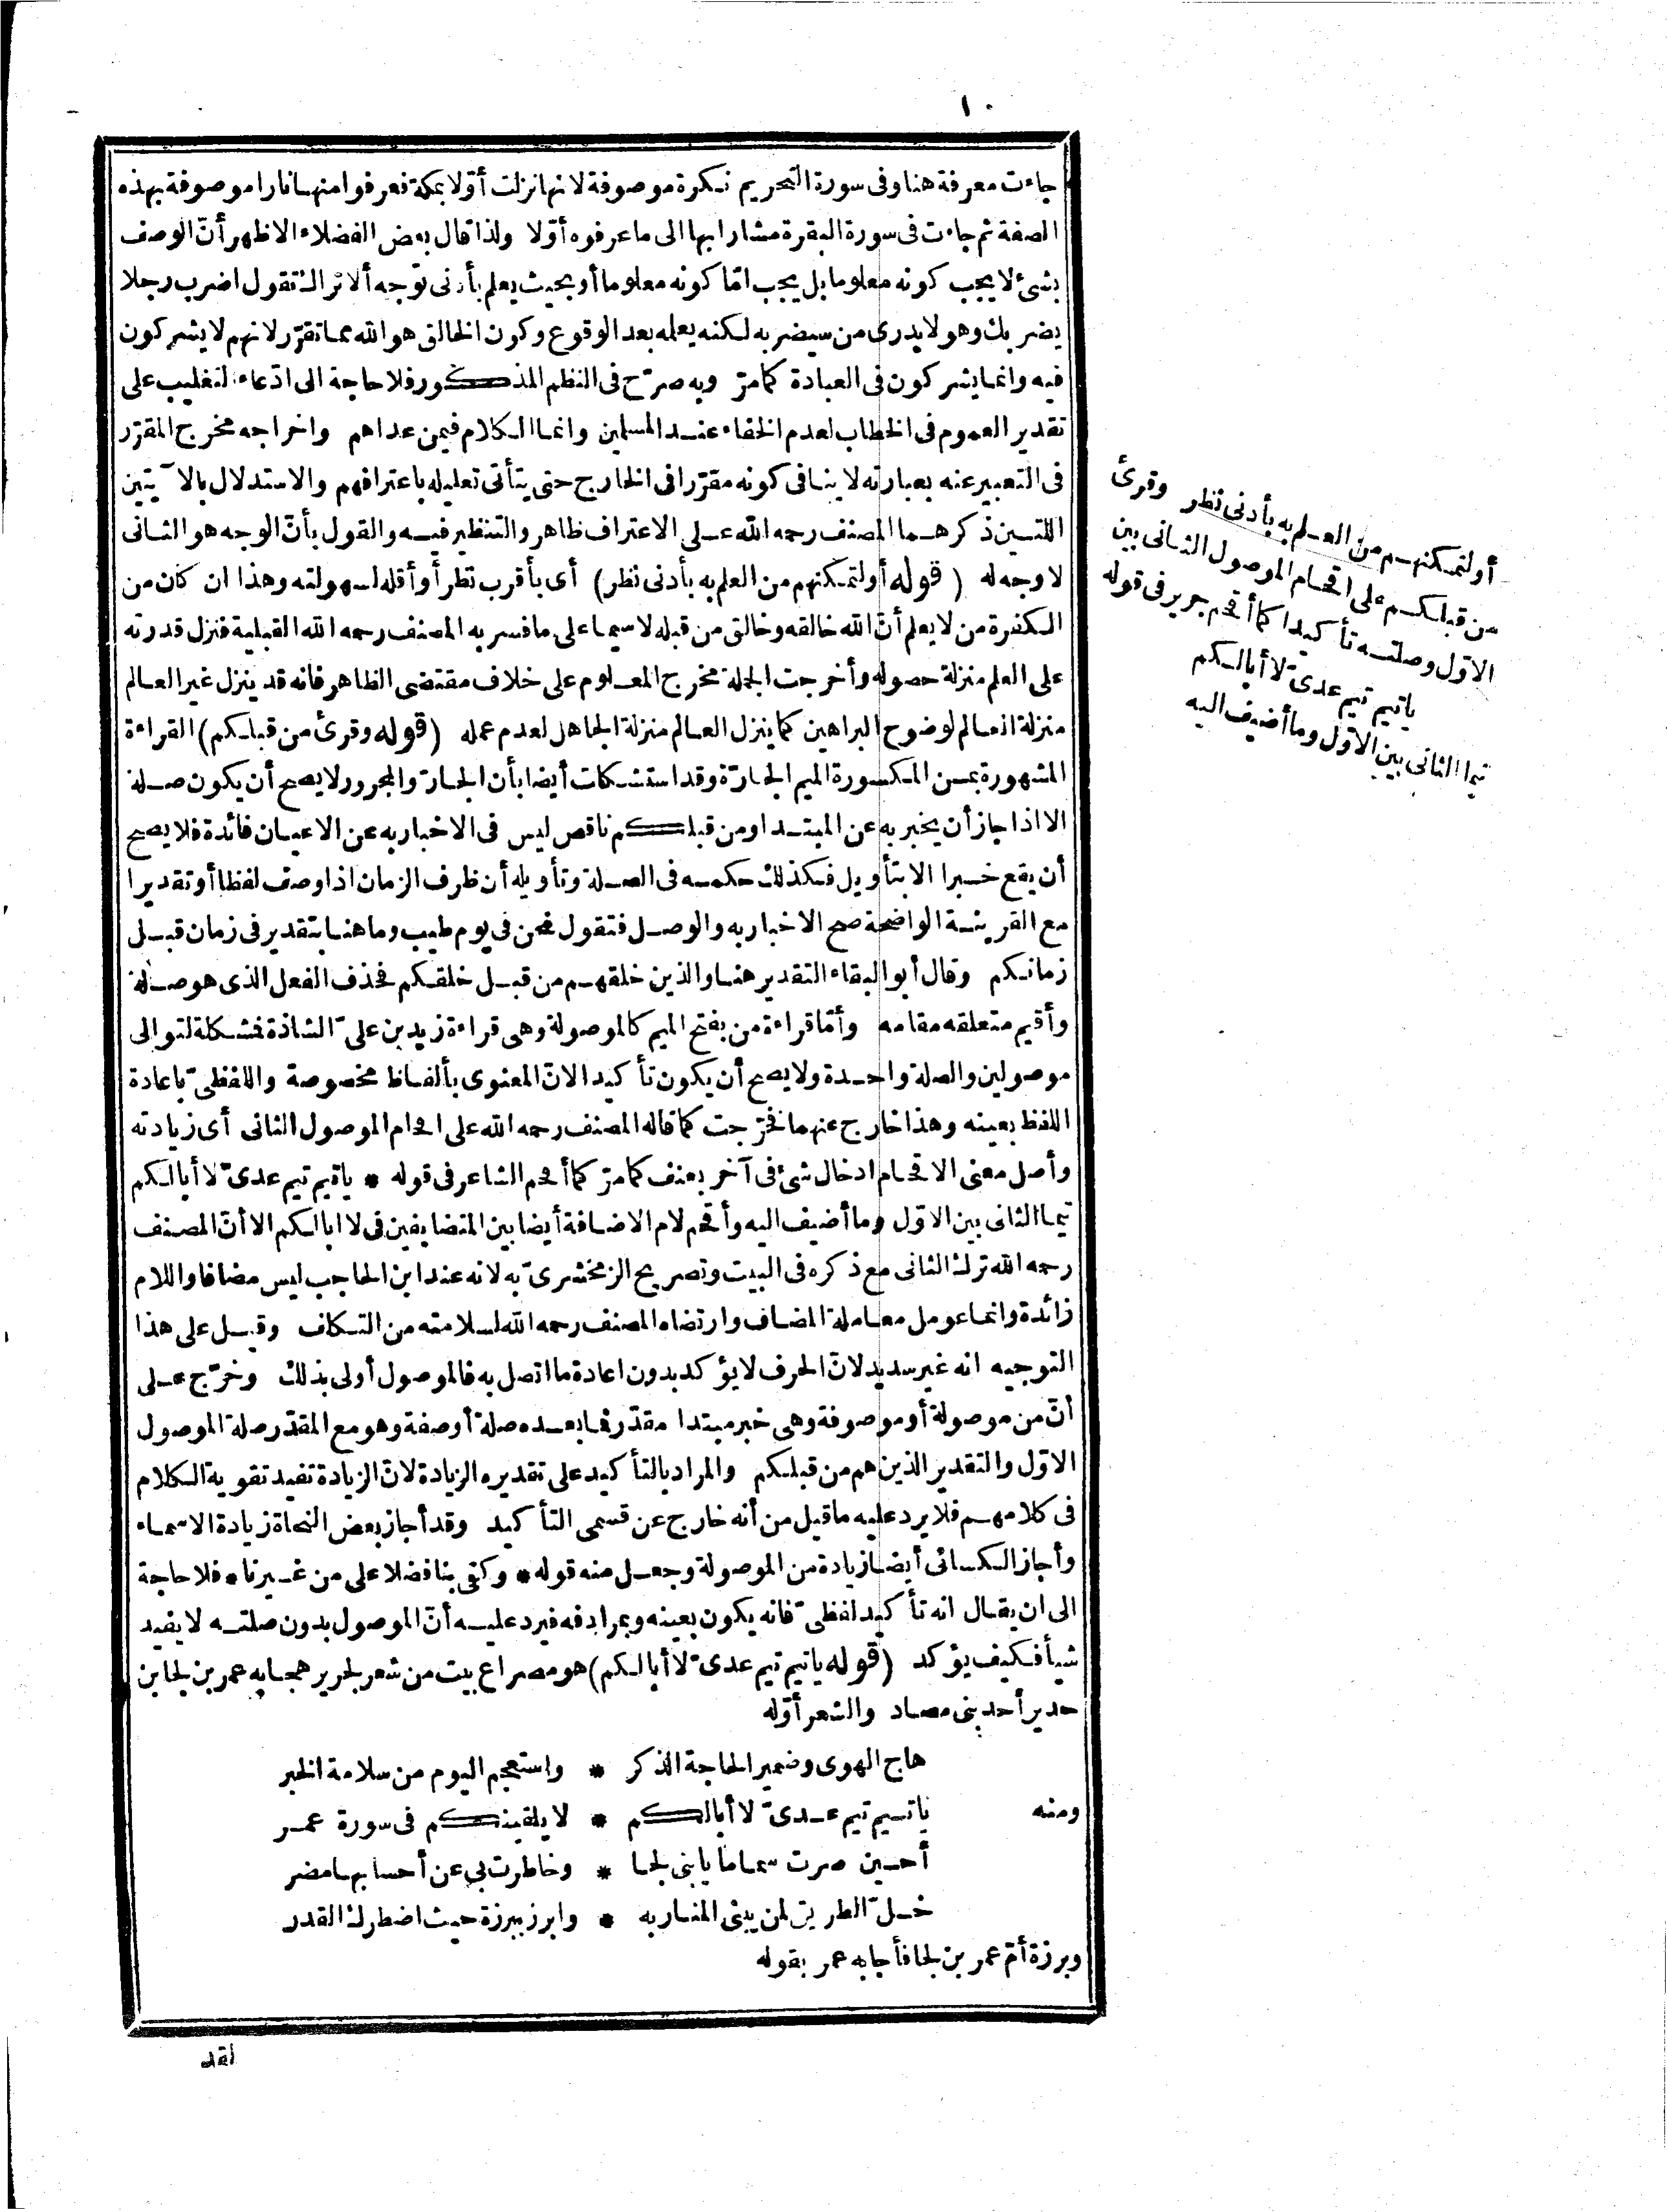 ١٠
جاءت معرفة هنا وفى سورة التحريم نكرة موصوفة لانها نزلت أوّلا بمكة فعرفوا منها نارا موصوفة بهذه
الصفة ثم جاءت فى سورة البقرة مشارا بها الى ما عرفوه أوّلا ولذا قال بعض الفضلاء الاظهر أنّ الوصف
بشئ لا يجب كونه معلوما بل يجب امّا كونه معلوما أو بحيث يعلم بأدنى توجه ألا تراك تقول اضرب رجلا
يضربك وهو لا يدرى من سيضربه لكنه يعلمه بعد الوقوع وكون الخالق هو الله مما تقرّر لانهم لا يشركون
فيه وانما يشركون فى العبادة كما مرّ وبه صرّح فى النظم المذكور فلا حاجة الى ادّعاء التغليب على
تقدير العموم فى الخطاب لعدم الخفاء عند المسلمين وانما الكلام فيمن عداهم واخراجه مخرج المقرّر
فى التعبير عنه بعبارته لا ينافى كونه مقرّرا فى الخارج حتى يتأتى تعليله باعترافهم والاستدلال بالآيتين
اللتين ذكرهما المصنف رحمه الله على الاعتراف ظاهر والتنظير فيه والقول بأنّ الوجه هو الثانى
لا وجه له (قوله أولتمكنهم من العلم به بأدنى نظر) أى بأقرب نظر أو أقله لسهولته وهذا ان كان من
الكفرة من لا يعلم أنّ الله خالقه وخالق من قبله لا سيما على ما فسر به المصنف رحمه الله القبلية فنزل قدرته
على العلم منزلة حصوله وأخرجت الجملة مخرج المعلوم على خلاف مقتضى الظاهر فانه قد ينزل غير العالم
منزلة العالم لوضوح البراهين كما ينزل العالم منزلة الجاهل لعدم عمله (قوله وقرئ من قبلكم) القراءة
المشهورة بمن المكسورة الميم الجارّة وقد استشكلت أيضا بأن الجارّ والمجرور لا يصح أن يكون صلة
الا اذا جاز أن يخبر به عن المبتدا ومن قبلكم ناقص ليس فى الاخبار به عن الاعيان فائدة فلا يصح
أن يقع خبرا الا بتأويل فكذلك حكمه فى الصلة وتأويله أن ظرف الزمان اذا وصف لفظا أو تقديرا
مع القرينة الواضحة صح الاخبار به والوصل فتقول نحن فى يوم طيب وما هنا بتقدير فى زمان قبل
زمانكم وقال أبو البقاء التقدير هنا والذين خلقهم من قبل خلقكم فحذف الفعل الذى هو صلة
وأقيم متعلقه مقامه وأمّا قراءة من بفتح الميم كالموصولة وهى قراءة زيد بن علىّ الشاذة فمشكلة لتوالى
موصولين والصلة واحدة ولا يصح أن يكون تأكيدا لانّ المعنوى بألفاظ مخصوصة واللفظىّ باعادة
اللفظ بعينه وهذا خارج عنهما فخرّجت كما قاله المصنف رحمه الله على اقحام الموصول الثانى أى زيادته
وأصل معنى الاقحام ادخال شئ فى آخر بعنف كما مرّ كما أقحم الشاعر فى قوله * يا تيم تيم عدىّ لا أبا لكم
تيما الثانى بين الاوّل وما أضيف اليه وأقحم لام الاضافة أيضا بين المتضايفين فى لا ابا لكم الا أنّ المصنف
رحمه الله ترك الثانى مع ذكره فى البيت وتصريح الزمخشرىّ به لانه عند ابن الحاجب ليس مضافا واللام
زائدة وانما عومل معاملة المضاف وارتضاه المصنف رحمه الله لسلامته من التكلف وقيل على هذا
التوجيه انه غير سديد لانّ الحرف لا يؤكد بدون اعادة ما اتصل به فالموصول أولى بذلك وخرّج على
أنّ من موصولة أو موصوفة وهى خبر مبتدا مقدّر فما بعده صلة أو صفة وهو مع المقدّر صلة الموصول
الاوّل والتقدير الذين هم من قبلكم والمراد بالتأكيد على تقديره الزيادة لانّ الزيادة تفيد تقوية الكلام
فى كلامهم فلا يرد عليه ما قيل من أنه خارج عن قسمى التأكيد وقد أجاز بعض النحاة زيادة الاسماء
وأجاز الكسائى أيضا زيادة من الموصولة وجعل منه قوله * وكفى بنا فضلا على من غيرنا * فلا حاجة
الى ان يقال انه تأكيد لفظىّ فانه يكون بعينه وبمرادفه فيرد عليه أنّ الموصول بدون صلته لا يفيد
شيأ فكيف يؤكد (قوله يا تيم تيم عدىّ لا أبا لكم) هو مصراع بيت من شعر لجرير هجا به عمر بن لجا بن
حدير أحد بنى مصاد والشعر أوّله
هاج الهوى وضمير الحاجة الذكر * واستعجم اليوم من سلامة الخبر
ومنه يا تيم تيم عدىّ لا أبا لكم * لا يلقينكم فى سورة عمر
أحين صرت سماما يا بنى لجا * وخاطرت بى عن أحسابها مضر
خلّ الطريق لمن يبنى المنار به * وابرز ببرزة حيث اضطرك القدر
وبرزة أمّ عمر بن لجا فأجابه عمر بقوله
لقد
أولتمكنهم من العلم به بأدنى نظر وقرئ
من قبلكم على اقحام الموصول الثانى بين
الاوّل وصلته تأكيدا كما أقحم جرير فى قوله
يا تيم تيم عدىّ لا أبا لكم
تيما الثانى بين الاوّل وما أضيف اليه